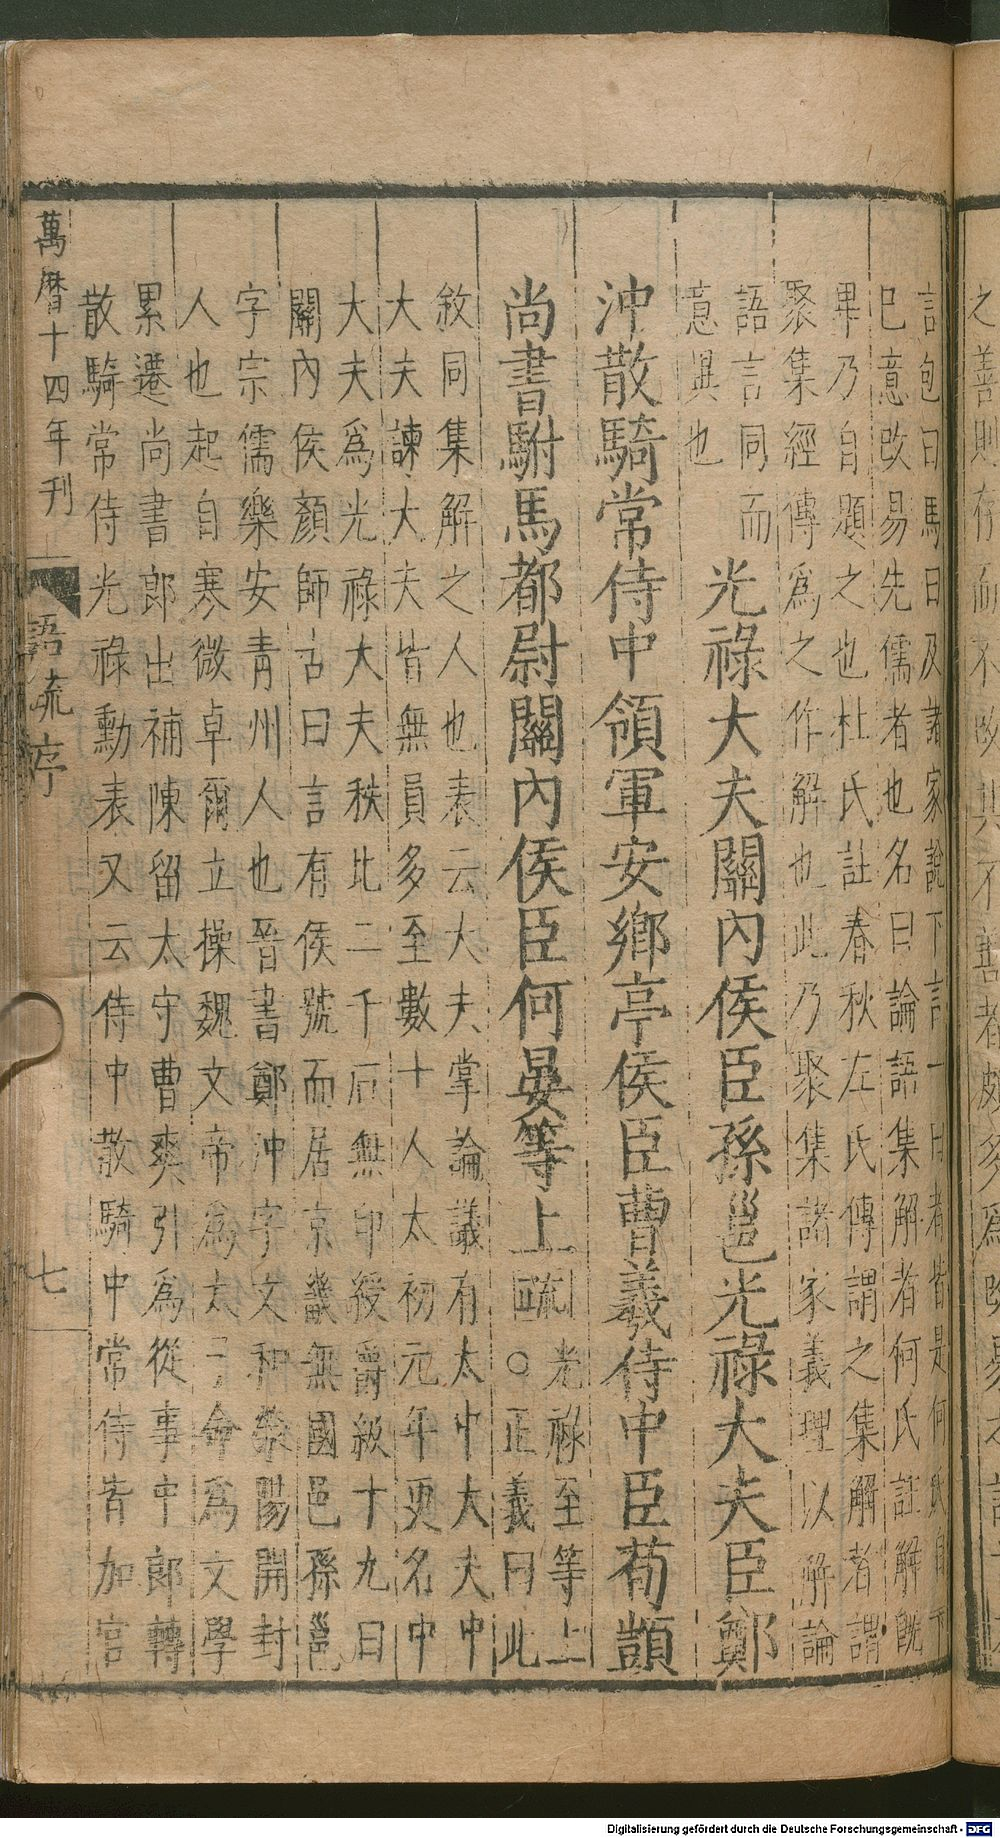 之善則存而不改其不善者頗多為改易之
言包曰馬曰及諸家說下言一曰者皆是何氏自下
已意改易先儒者也名曰論語集解者何氏註解旣
畢乃自題之也杜氏註春秋左氏傳謂之集解者謂
聚集經傳為之作解也此乃聚集諸家義理以解論
語言同而
意異也
光祿大夫關內侯臣孫邕光祿大夫臣鄭
沖散騎常侍中領軍安鄉亭侯臣曹羲侍中臣荀顗
尚書駙馬都尉關內侯臣何晏等上
疏
光祿至等上
○正義曰此
敘同集解之人也表云大夫掌論議有太中大夫中
大夫諫大夫皆無員多至數十人太初元年更名中
大夫爲光祿大夫秩比二千石無印綬爵級十九曰
關內侯顏師古曰言有侯號而居京畿無國邑孫邕
字宗儒樂安青州人也晉書鄭沖字文和滎陽開封
人也起自寒微卓爾立操魏文帝爲太子命爲文學
累遷尚書郎出補陳留太守曹爽引爲從事中郎轉
散騎常侍光祿勳表又云侍中散騎中常侍皆加官
萬曆十四年刊
語疏序
七
Digitalisierung gefördert durch die Deutsche Forschungsgemeinschaft - DFG